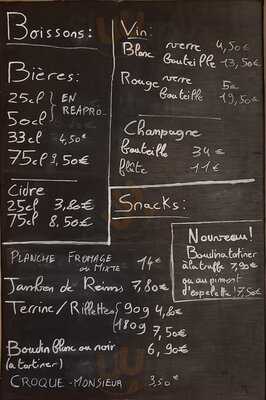 Boissons:
Bières:
25cl } EN
50cl } REAPRO-
33cl 4,50€
75cl 9,50€
Cidre
25cl 3,80€
75cl 8,50€
Vin:
Blanc verre 4,50€
bouteille 13,50€
Rouge verre 5€
bouteille 19,50€
Champagne
bouteille 34€
flûte 11€
Snacks:
PLANCHE FROMAGE
ou MIXTE 14€
Jambon de Reims 7,80€
Terrine/Rillettes { 90g 4,80€
180g 7,50€
Boudin blanc ou noir 6,90€
(à tartiner)
CROQUE-MONSIEUR 3,50€
Nouveau!
Boudin à tartiner
à la truffe 7,90€
ou au piment
d'espelette 7,50€